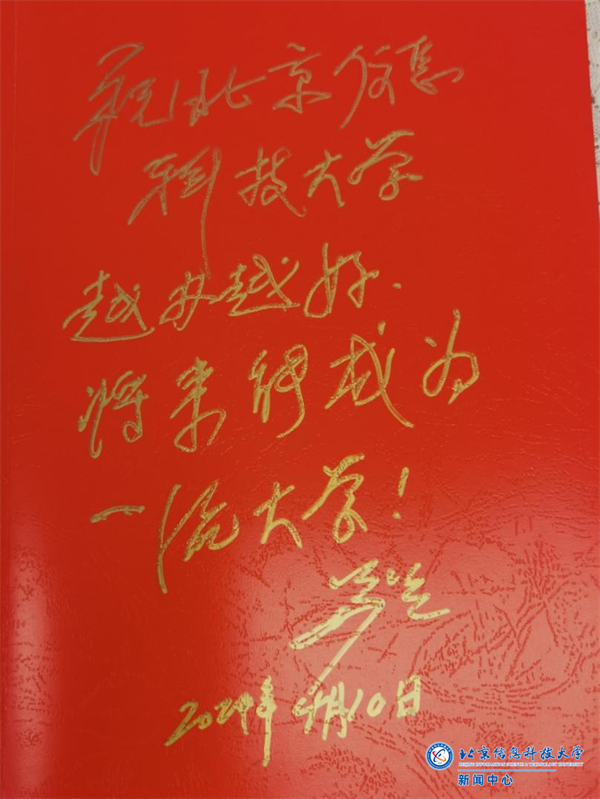 祝北京信息
科技大学
越办越好.
将来能成为
一流大学!
2024年9月10日
北京信息科技大学
BEIJING INFORMATION SCIENCE & TECHNOLOGY UNIVERSITY
新闻中心